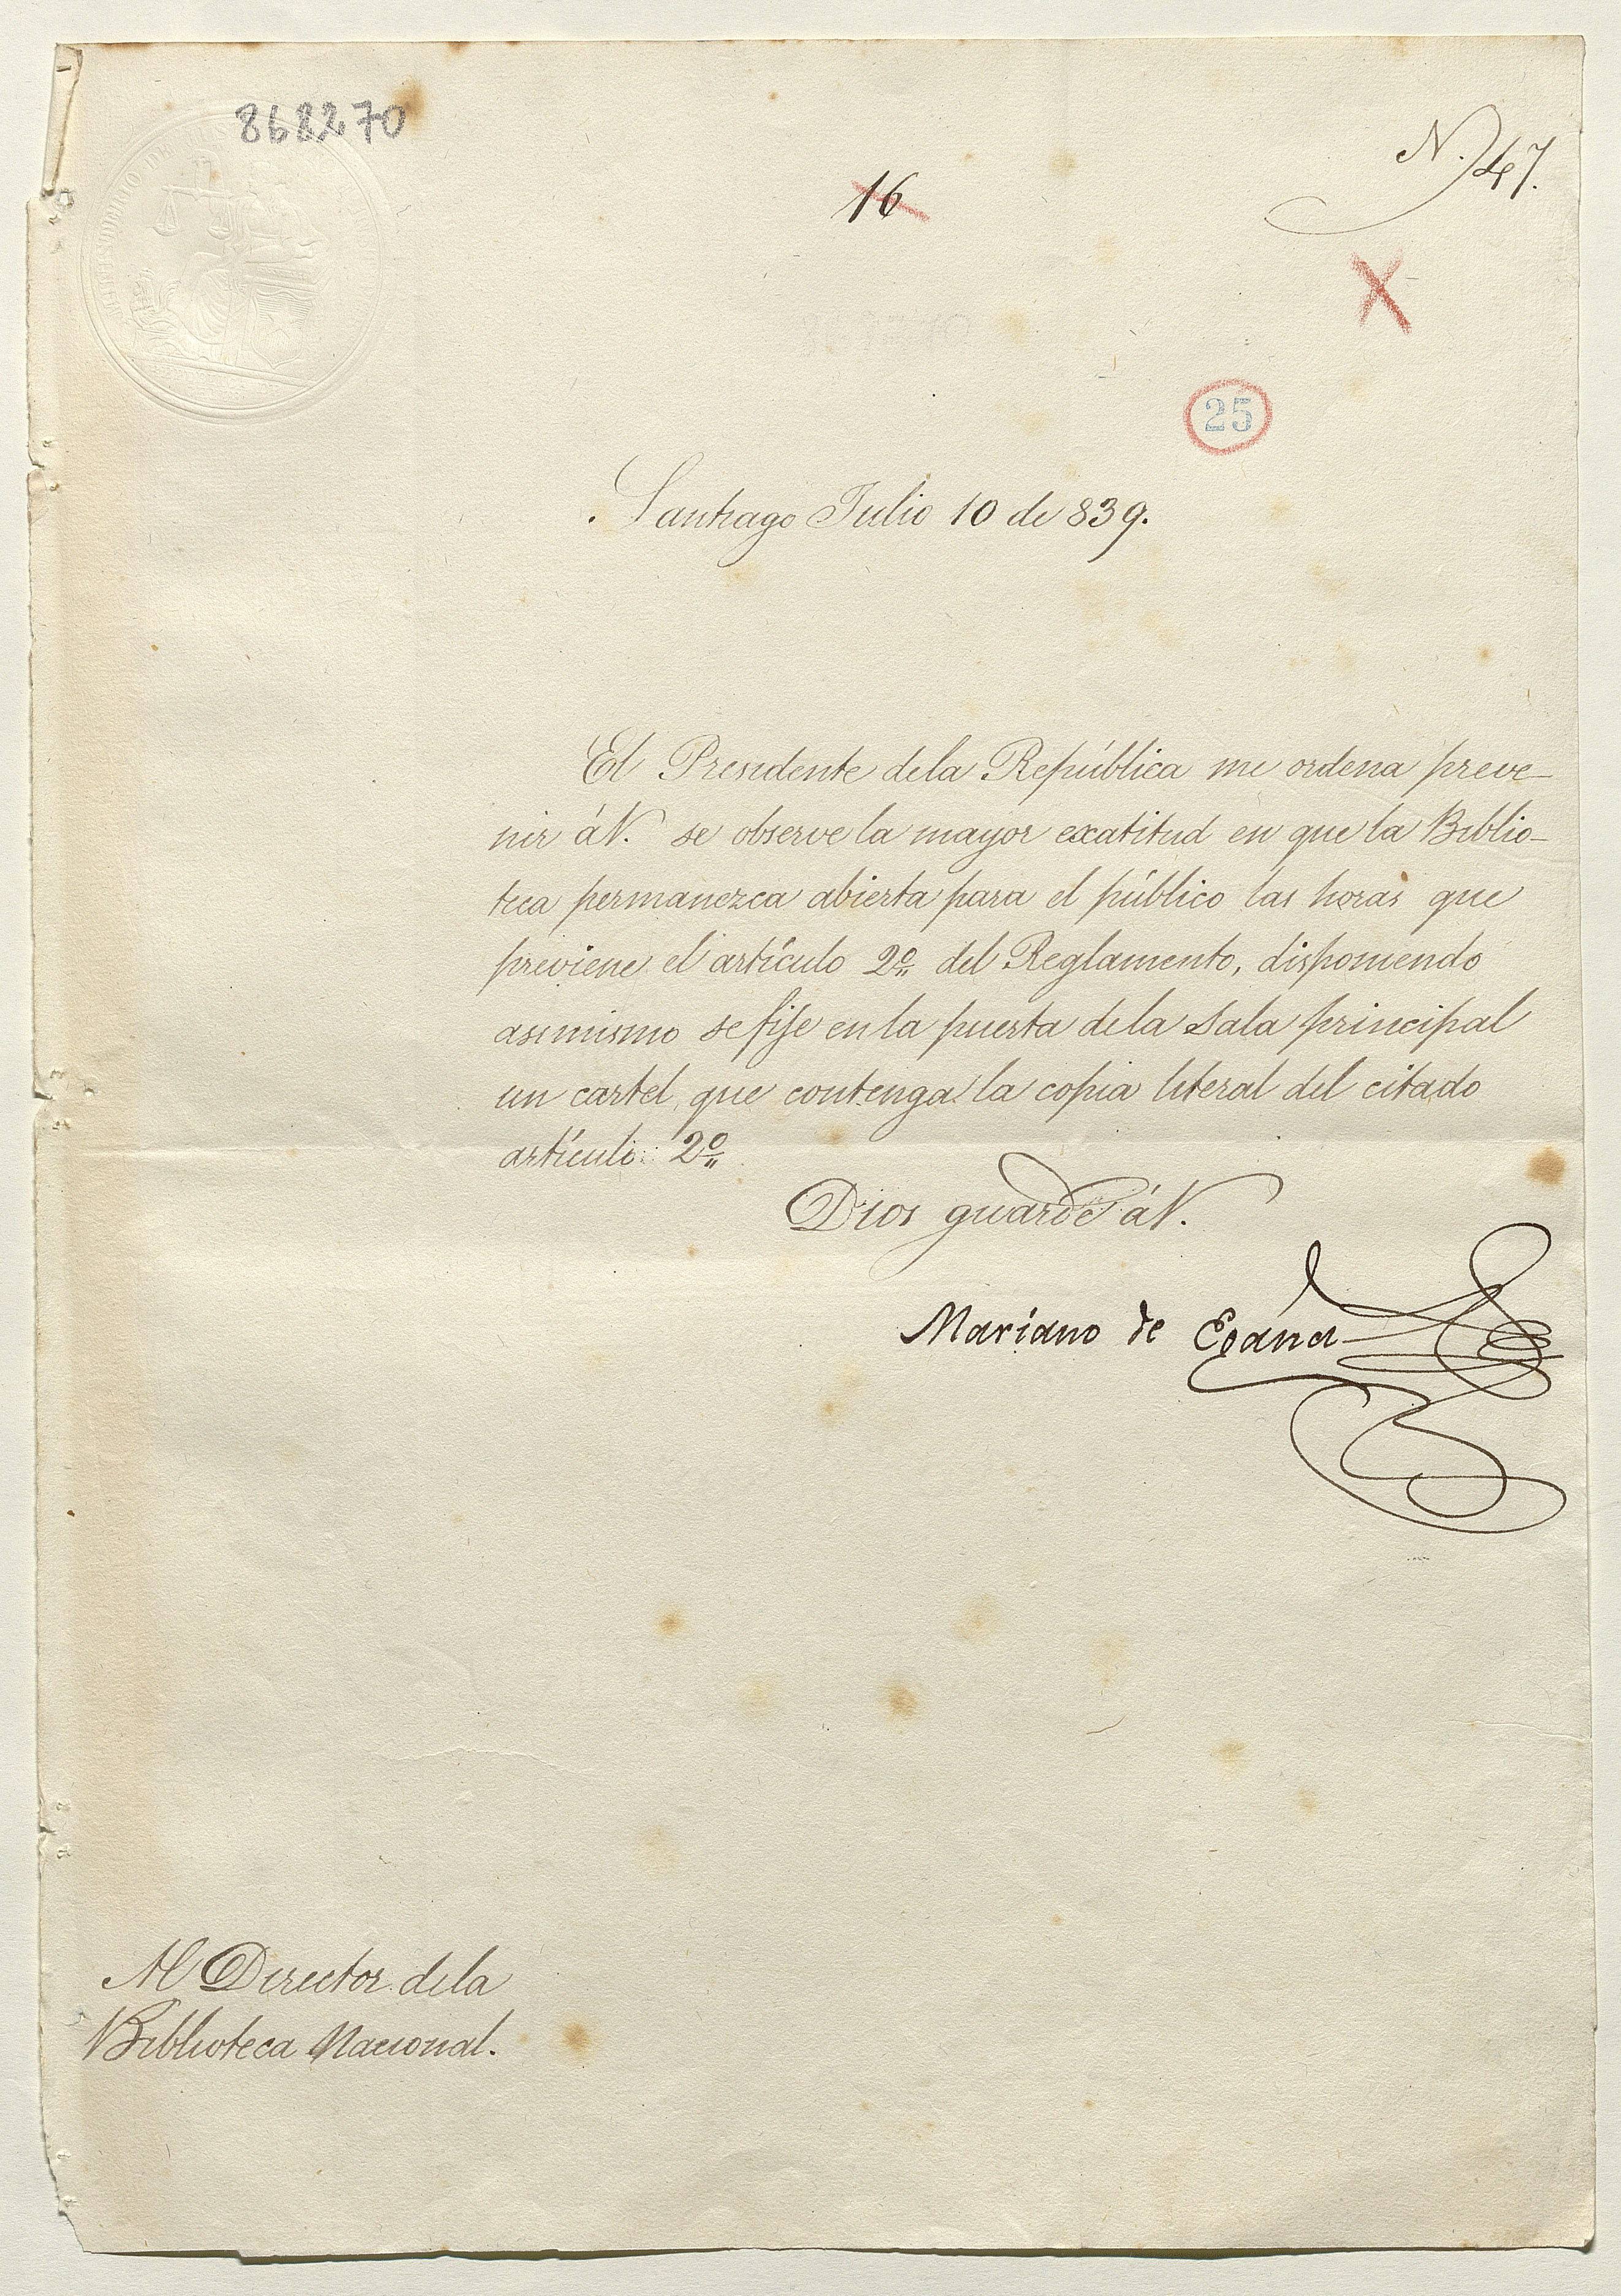 868270
N. 47.
16
X
25
Santiago Julio 10 de 839.
El Presidente dela República me ordena preve-
nir áV. se observe la mayor exatitud en que la Biblio-
teca permanezca abierta para el público las horas que
previene el artículo 2º del Reglamento, disponiendo
asimismo se fije en la puerta dela Sala principal
un cartel, que contenga la copia literal del citado
artículo 2º
Dios guarde áV.
Mariano de Egaña
Al Director dela
Biblioteca Nacional.